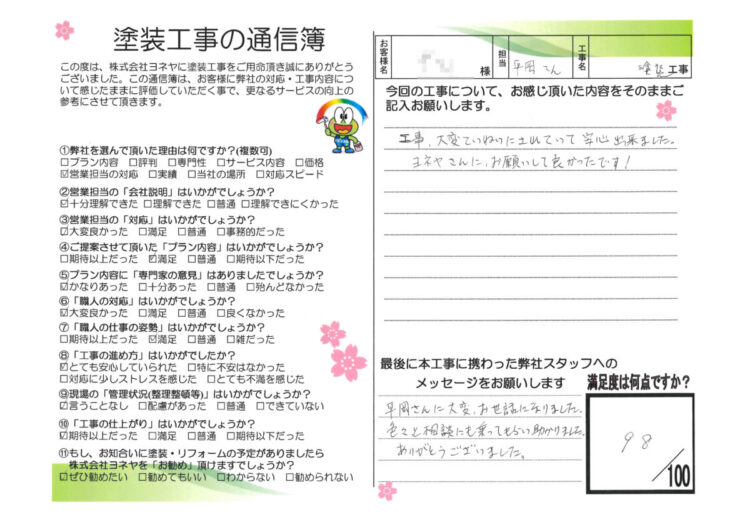 塗装工事の通信簿
この度は、株式会社ヨネヤに塗装工事をご用命頂き誠にありがとう
ございました。この通信簿は、お客様に弊社の対応・工事内容につ
いて感じたままに評価していただく事で、更なるサービスの向上の
参考にさせて頂きます。
①弊社を選んで頂いた理由は何ですか?(複数可)
□プラン内容 □評判 □専門性 □サービス内容 □価格
☑営業担当の対応 □実績 □当社の場所 □対応スピード
②営業担当の「会社説明」はいかがでしょうか?
☑十分理解できた □理解できた □普通 □理解できにくかった
③営業担当の「対応」はいかがでしょうか?
☑大変良かった □満足 □普通 □事務的だった
④ご提案させて頂いた「プラン内容」はいかがでしょうか?
□期待以上だった ☑満足 □普通 □期待以下だった
⑤プラン内容に「専門家の意見」はありましたでしょうか?
☑かなりあった □十分あった □普通 □殆んどなかった
⑥「職人の対応」はいかがでしょうか?
☑大変良かった □満足 □普通 □良くなかった
⑦「職人の仕事の姿勢」はいかがでしょうか?
□期待以上だった ☑満足 □普通 □雑だった
⑧「工事の進め方」はいかがでしたか?
☑とても安心していられた □特に不安はなかった
□対応に少しストレスを感じた □とても不満を感じた
⑨現場の「管理状況(整理整頓等)」はいかがでしょうか?
☑言うことなし □配慮があった □普通 □できていない
⑩「工事の仕上がり」はいかがでしょうか?
☑期待以上だった □満足 □普通 □期待以下だった
⑪もし、お知合いに塗装・リフォームの予定がありましたら
株式会社ヨネヤを「お勧め」頂けますでしょうか?
☑ぜひ勧めたい □勧めてもいい □わからない □勧められない
お客様名 様 担当 平岡さん 工事名 塗装工事
今回の工事について、お感じ頂いた内容をそのままご
記入お願いします。
工事、大変ていねいにされていて安心出来ました。
ヨネヤさんに、お願いして良かったです!
最後に本工事に携わった弊社スタッフへの
メッセージをお願いします
平岡さんに大変、お世話になりました。
色々と相談にも乗ってもらい助かりました。
ありがとうございました。
満足度は何点ですか?
98
/100